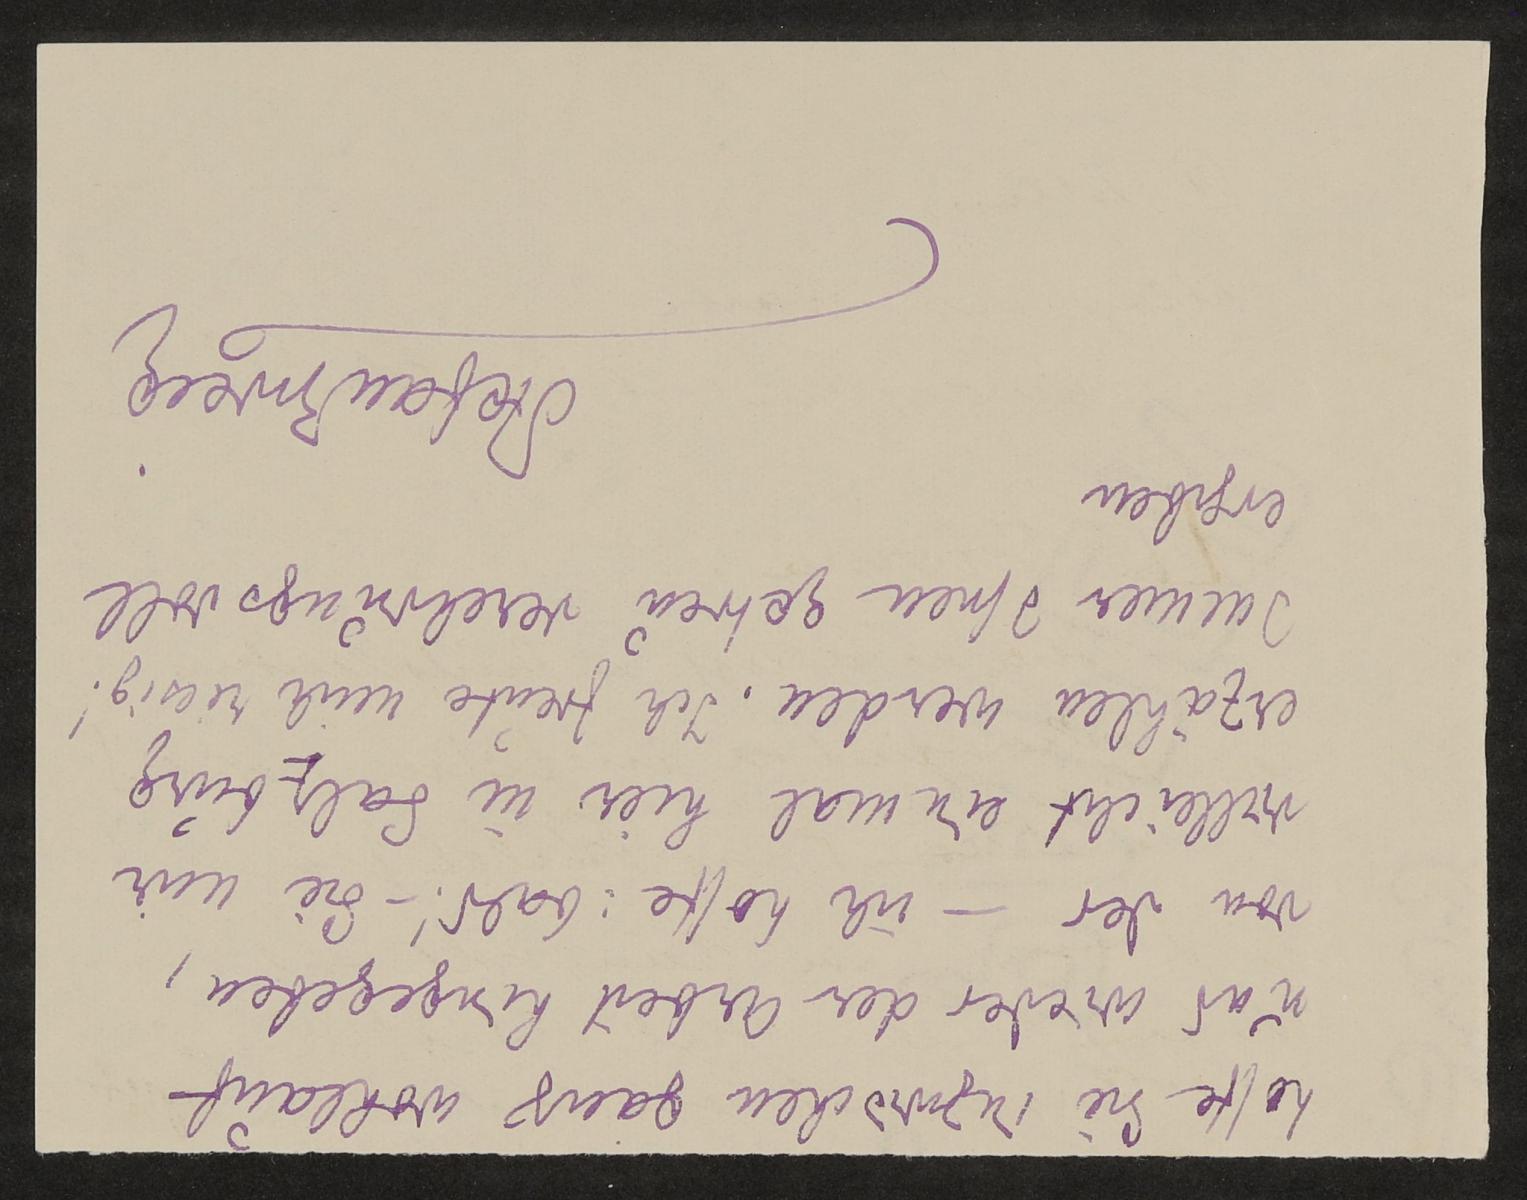 hoffe Sie inzwischen ganz wohlauf
und wieder der Arbeit hingegeben,
von der – ich hoffe: bald! – Sie mir
vielleicht einmal hier in Salzburg
erzählen werden. Ich freute mich riesig!
Immer Ihnen getreu verehrungsvoll
ergeben
Stefan Zweig